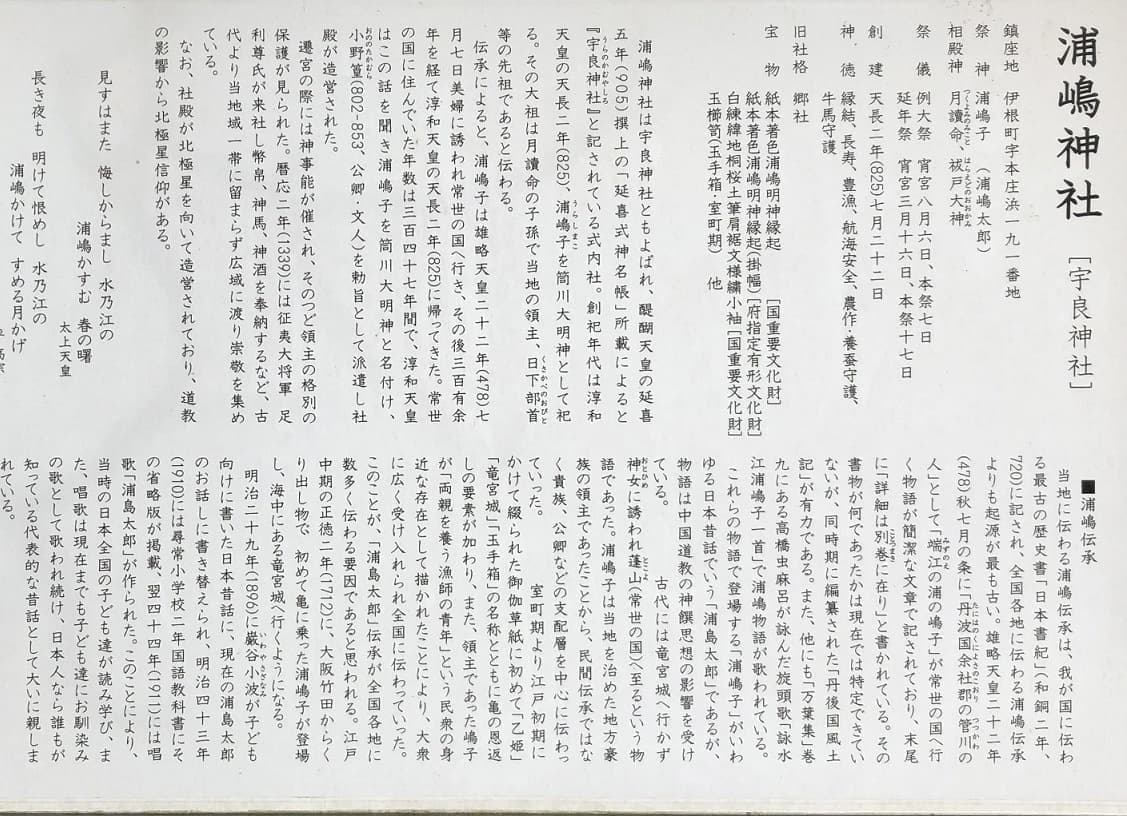 浦嶋神社 [宇良神社]
鎮座地 伊根町字本庄浜一九一番地
祭神 浦嶋子 (浦嶋太郎)
相殿神 月讀命、祓戸大神
つくよみのみこと はらえどのおおかみ
祭儀 例大祭 宵宮八月六日、本祭七日
延年祭 宵宮三月十六日、本祭十七日
創建 天長二年(825)七月二十二日
神徳 縁結、長寿、豊漁、航海安全、農作・養蚕守護、
牛馬守護
旧社格 郷社
宝物 紙本著色浦嶋明神縁起 [国重要文化財]
紙本著色浦嶋明神縁起(掛幅)[府指定有形文化財]
白練緯地桐桜土筆肩裾文様繍小袖[国重要文化財]
玉櫛笥(玉手箱・室町期) 他
浦嶋神社は宇良神社ともよばれ、醍醐天皇の延喜
五年(905)撰上の「延喜式神名帳」所載によると
『宇良神社』と記されている式内社。創祀年代は淳和
うらのかむやしろ
天皇の天長二年(825)、浦嶋子を筒川大明神として祀
うらしまこ
る。その大祖は月讀命の子孫で当地の領主、日下部首
くさかべのおびと
等の先祖であると伝わる。
伝承によると、浦嶋子は雄略天皇二十二年(478)七
月七日美婦に誘われ常世の国へ行き、その後三百有余
年を経て淳和天皇の天長二年(825)に帰ってきた。常世
の国に住んでいた年数は三百四十七年間で、淳和天皇
はこの話を聞き浦嶋子を筒川大明神と名付け、
小野篁(802-853、公卿・文人)を勅旨として派遣し社
おののたかむら
殿が造営された。
遷宮の際には神事能が催され、そのつど領主の格別の
保護が見られた。暦応二年(1339)には征夷大将軍 足
利尊氏が来社し幣帛、神馬、神酒を奉納するなど、古
代より当地域一帯に留まらず広域に渡り崇敬を集め
ている。
なお、社殿が北極星を向いて造営されており、道教
の影響から北極星信仰がある。
見すはまた 悔しからまし 水乃江の
浦嶋かすむ 春の曙
太上天皇
長き夜も 明けて恨めし 水乃江の
浦嶋かけて すめる月かげ
■浦嶋伝承
当地に伝わる浦嶋伝承は、我が国に伝わ
る最古の歴史書「日本書紀」(和銅二年、
720)に記され、全国各地に伝わる浦嶋伝承
よりも起源が最も古い。雄略天皇二十二年
(478)秋七月の条に「丹波国余社郡の管川の
たにはのくによさのこおり つつかわ
人」として、「端江の浦の嶋子」が常世の国へ行
みずのえ
く物語が簡潔な文章で記されており、末尾
に「詳細は別巻に在り」と書かれている。その
ことまき
書物が何であったかは現在では特定できてい
ないが、同時期に編纂された「丹後国風土
記」が有力である。また、他にも「万葉集」巻
九にある高橋虫麻呂が詠んだ旋頭歌「詠水
江浦嶋子一首」で浦嶋物語が歌われている。
これらの物語で登場する「浦嶋子」がいわ
ゆる日本昔話でいう「浦島太郎」であるが、
物語は中国道教の神饌思想の影響を受け
ている。 古代には竜宮城へ行かず
神女に誘われ蓬山(常世の国)へ至るという物
おとひめ とこよ
語であった。浦嶋子は当地を治めた地方豪
族の領主であったことから、民間伝承ではな
く貴族、公卿などの支配層を中心に伝わっ
ていった。 室町期より江戸初期に
かけて綴られた御伽草紙に初めて「乙姫」
「竜宮城」「玉手箱」の名称とともに亀の恩返
しの要素が加わり、また、領主であった嶋子
が「両親を養う漁師の青年」という民衆の身
近な存在として描かれたことにより、大衆
に広く受け入れられ全国に伝わっていった。
このことが、「浦島太郎」伝承が全国各地に
数多く伝わる要因であると思われる。江戸
中期の正徳二年(1712)に、大阪竹田からく
り出し物で 初めて亀に乗った浦嶋子が登場
し、海中にある竜宮城へ行くようになる。
明治二十九年(1896)に巌谷小波が子ども
いわやさざなみ
向けに書いた日本昔話に、現在の浦島太郎
のお話しに書き替えられ、明治四十三年
(1910)には尋常小学校二年国語教科書にそ
の省略版が掲載、翌四十四年(1911)には唱
歌「浦島太郎」が作られた。このことにより、
当時の日本全国の子ども達が読み学び、ま
た、唱歌は現在までも子ども達にお馴染み
の歌として歌われ続け、日本人なら誰もが
知っている代表的な昔話として大いに親しま
れている。